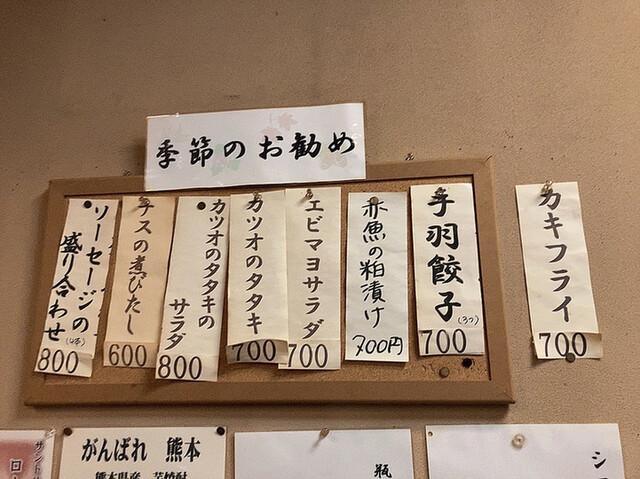 季節のお勧め
カキフライ
700
手羽餃子
(3つ)
700
赤魚の粕漬け
700円
エビマヨサラダ
700
カツオのタタキ
700
カツオのタタキの
サラダ
800
ナスの煮びたし
600
ソーセージの
盛り合わせ
(4本)
800
がんばれ 熊本
熊本県産 芋焼酎
瓶
シ
サントリ